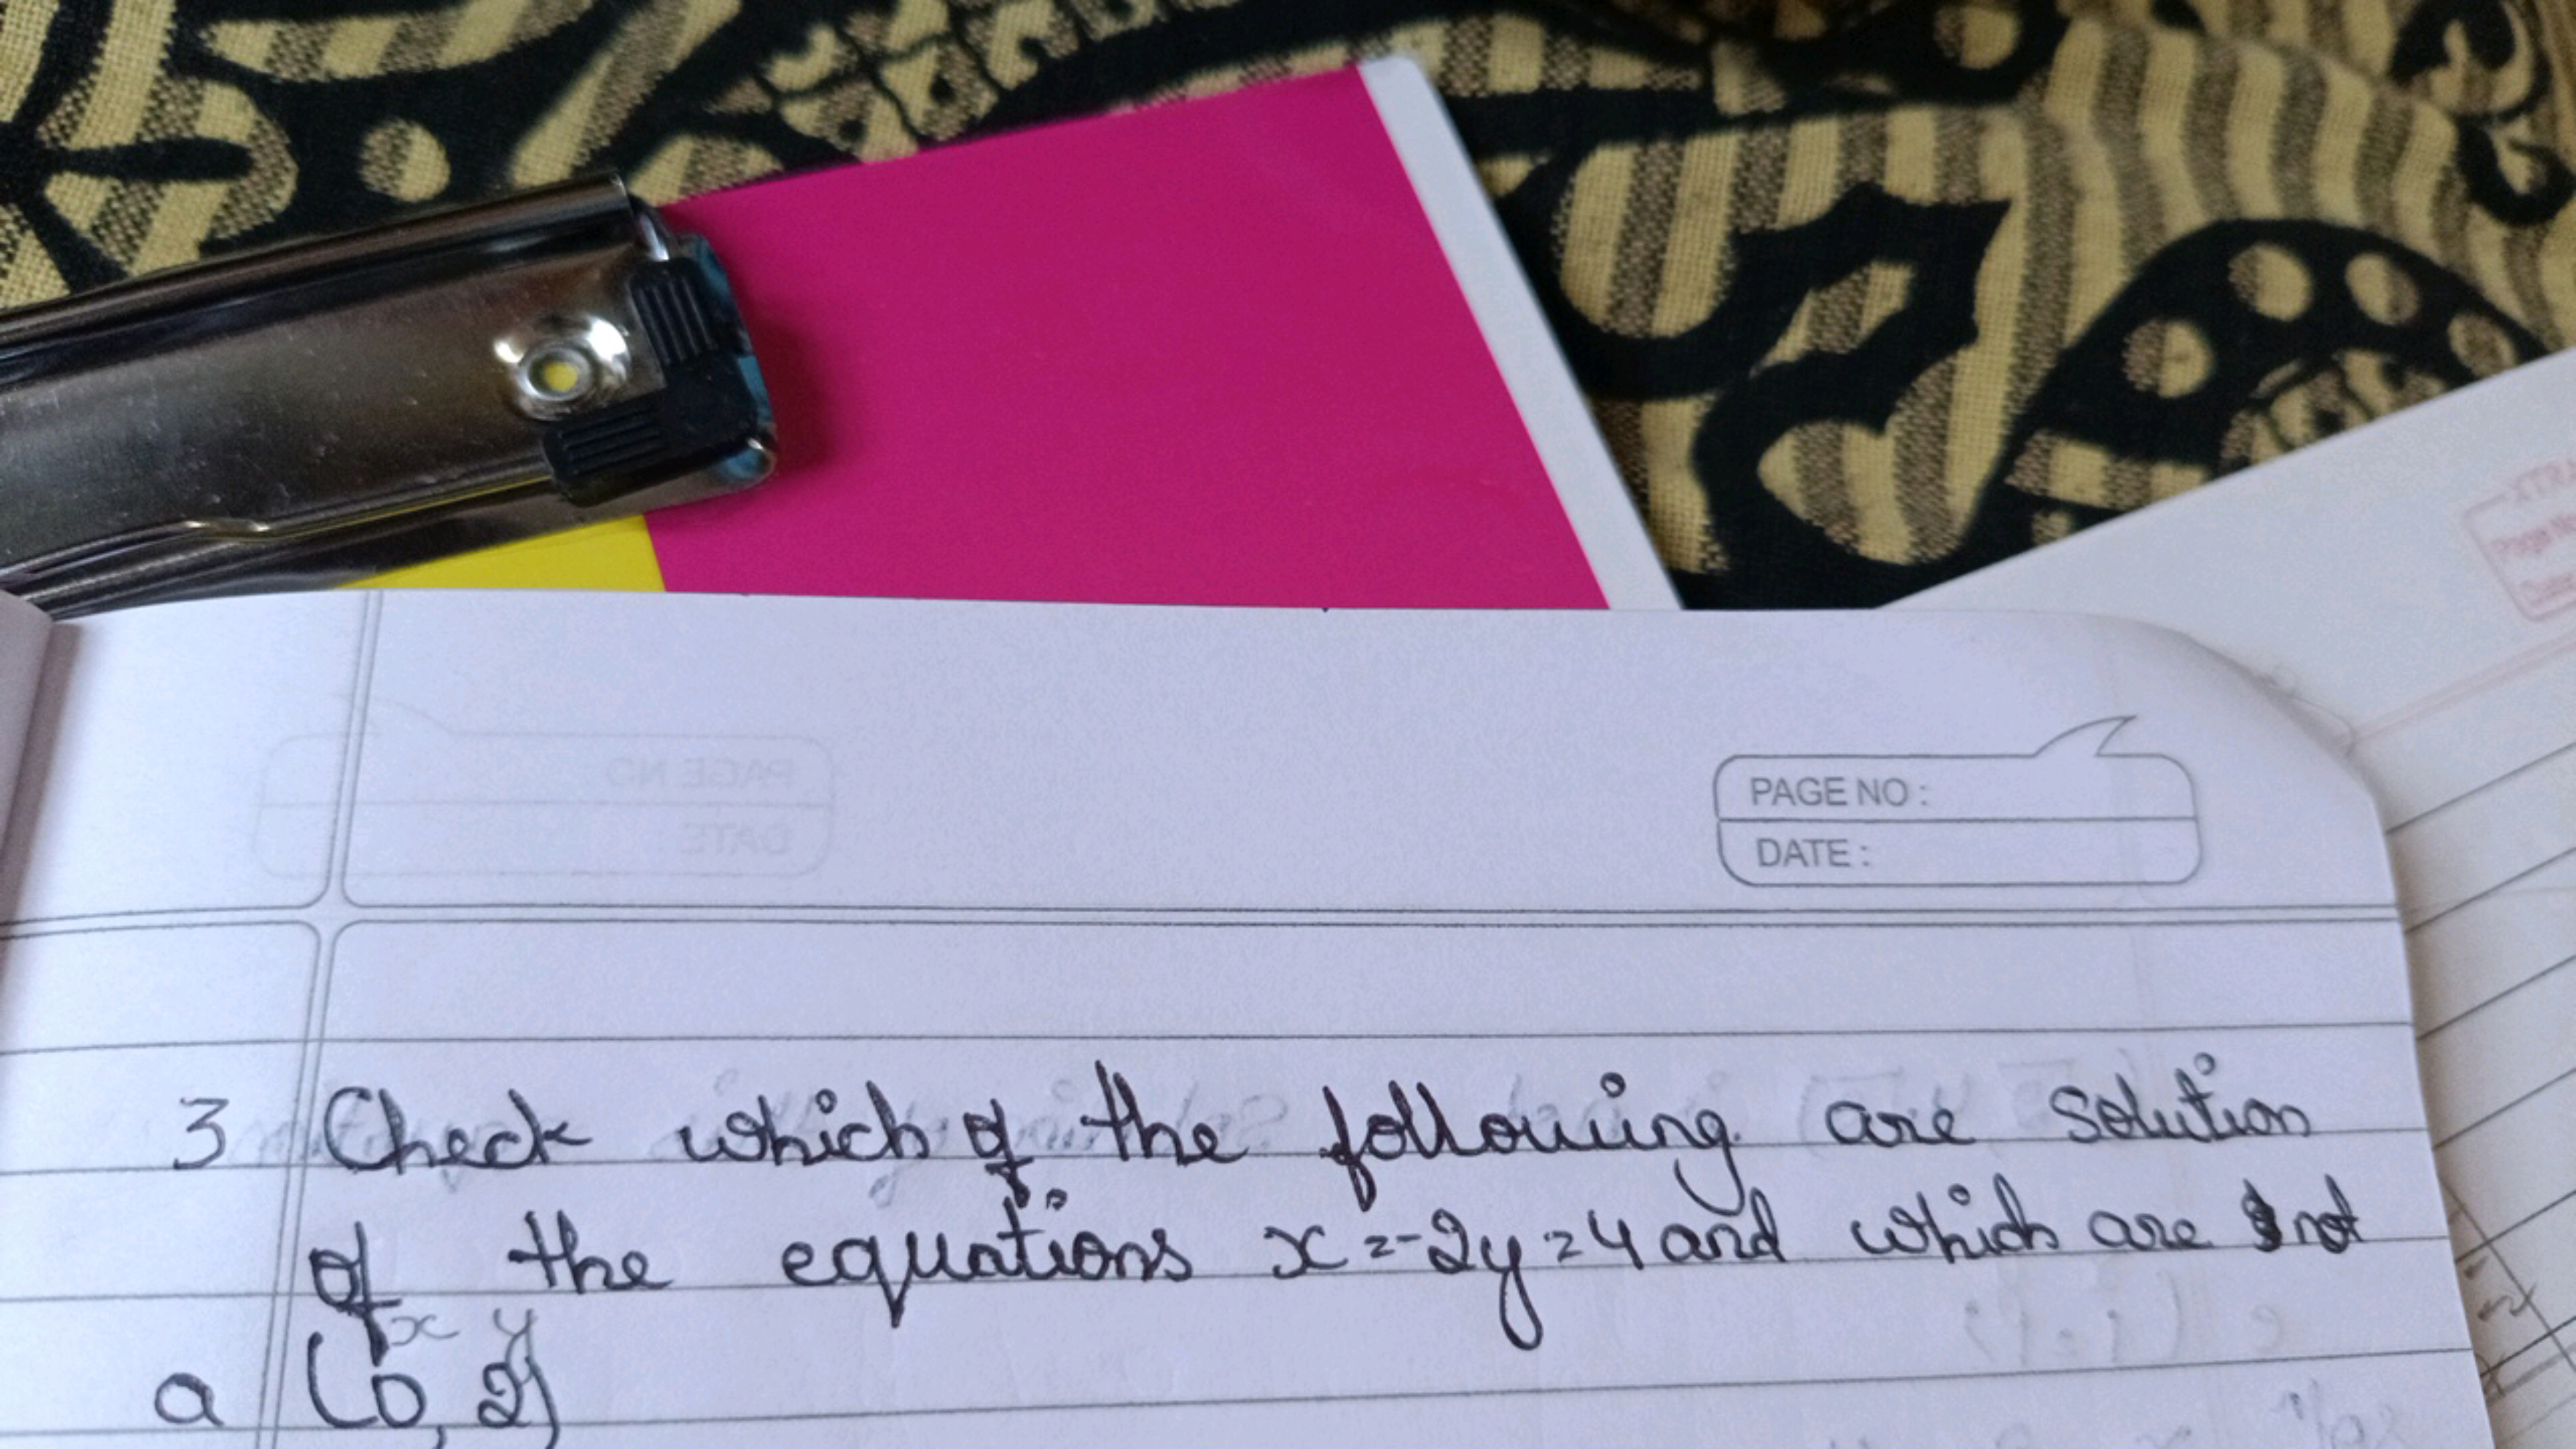 PAGE NO :
DATE :
3 Check which of the following are solution
of the equations x=-2y=4 and which are not
x y
a (0, 2)